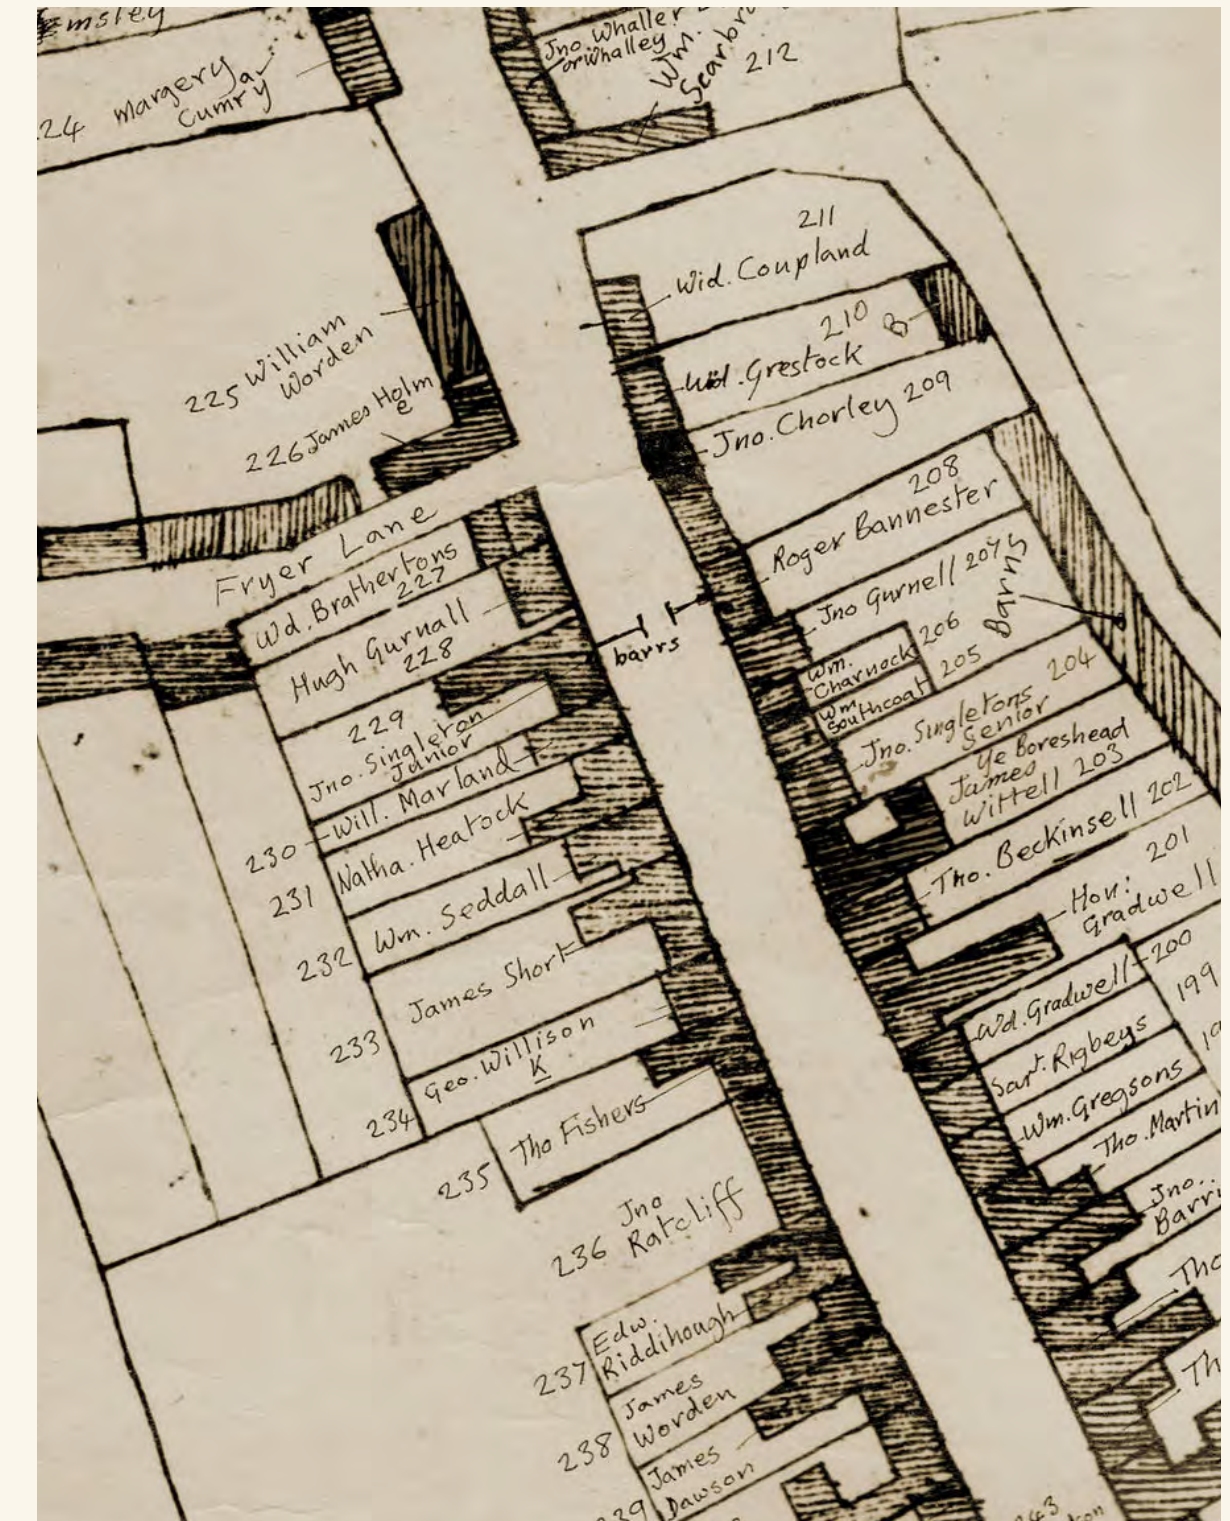 emsley
24 Margery
Cumry
Jno. Whaller
or Whalley
Wm.
Scarbri
212
211
Wid. Coupland
210
B
Wid. Grestock
Jno. Chorley 209
208
Roger Bannester
Jno Gurnell 207
Barns
Wm.
Charnock
206
Wm
Southcoat
205
204
Jno. Singletons
Senior
Ye Boreshead
James
Wittell 203
Tho. Beckinsell 202
201
Hon:
Gradwell
Wd. Gradwell 200
199
Sart. Rigbeys
19
Wm. Gregsons
Tho. Martin
Jno..
Barri
Tho
Th
225 William
Worden
226 James Holm
e
Fryer Lane
Wd. Brathertons
227
Hugh Gurnall
228
barrs
229
Jno. Singleton
Junior
230 Will. Marland
231 Natha. Heatock
232 Wm. Seddall
233 James Short
234 Geo. Willison
K
235 Tho Fishers
236 Jno
Ratcliff
237 Edw.
Riddihough
238 James
Worden
239 James
Dawson
243